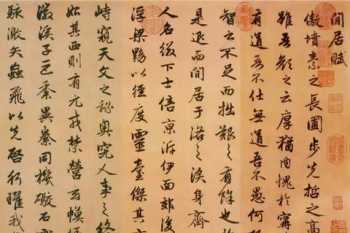 閒居賦
傲墳素之長圃步先哲之高
雖吾顏之云厚猶内愧於甯
有道吾不仕無道吾不愚何
智之不足而拙艱之有餘也
是退而閒居于洛之涘身齊
人名綴下士倍京泝伊面郊後
浮梁黝以徑度靈臺傑其
峙窺天文之秘奧究人事之
始其西則有元戎禁營玄幙綠
徽溪子巨黍異絭同機礮石
駭激矢蝱飛以先啓行耀我